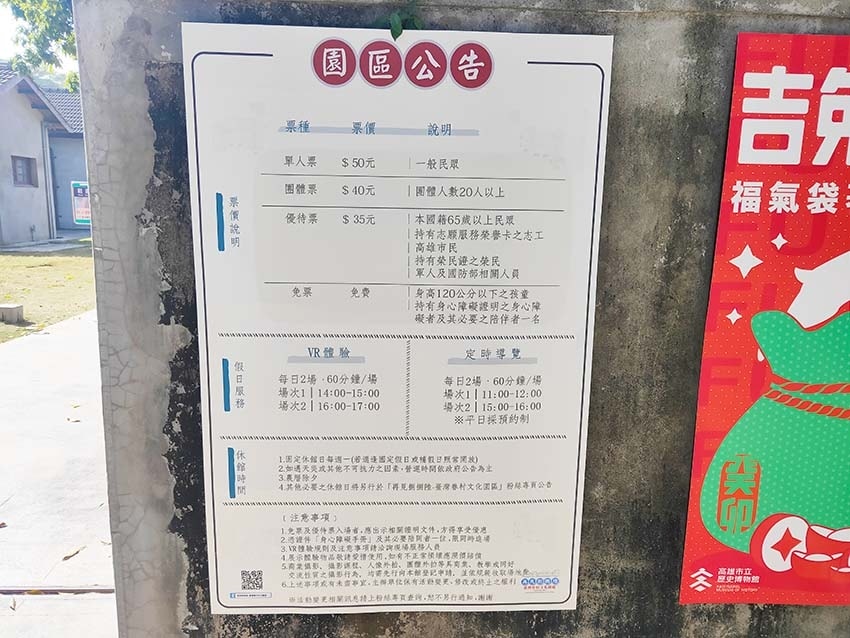 園區公告
票種 票價 說明
票價說明
單人票 $50元 一般民眾
團體票 $40元 團體人數20人以上
優待票 $35元 本國籍65歲以上民眾
持有志願服務榮譽卡之志工
高雄市民
持有榮民證之榮民
軍人及國防部相關人員
免票 免費 身高120公分以下之孩童
持有身心障礙證明之身心障
礙者及其必要之陪伴者一名
假日服務
VR體驗
每日2場·60分鐘/場
場次1|14:00-15:00
場次2|16:00-17:00
定時導覽
每日2場·60分鐘/場
場次1|11:00-12:00
場次2|15:00-16:00
※平日採預約制
休館時間
1.固定休館日每週一(若適逢國定假日或補假日照常開放)
2.如遇天災或其他不可抗力之因素,營運時間依政府公告為主
3.農曆除夕
4.其他必要之休館日將另行於「再見捌捌陸-臺灣眷村文化園區」粉絲專頁公告
(注意事項)
1.免票及優待票入場者,應出示相關證明文件,方得享受優惠
2.憑證件「身心障礙手冊」及其必要陪同者一位,限同時進場
3.VR體驗規則及注意事項請洽詢現場服務人員
4.展示體驗物品敬請愛惜使用,如有不正常損壞應照價賠償
5.商業攝影、攝影課程、人像外拍、團體外拍等具商業、教學或同好
交流性質之攝影行為,均需先行向本館登記申請,並依規繳收取場地費
6.上述事項或有未盡事宜,主辦單位保有活動變更、修改或終止之權利
※活動變更相關訊息請上粉絲專頁查詢,恕不另行通知,謝謝
吉兔
福氣袋
FU
高雄市立
歷史博物館
KAOHSIUNG
MUSEUM OF HISTORY